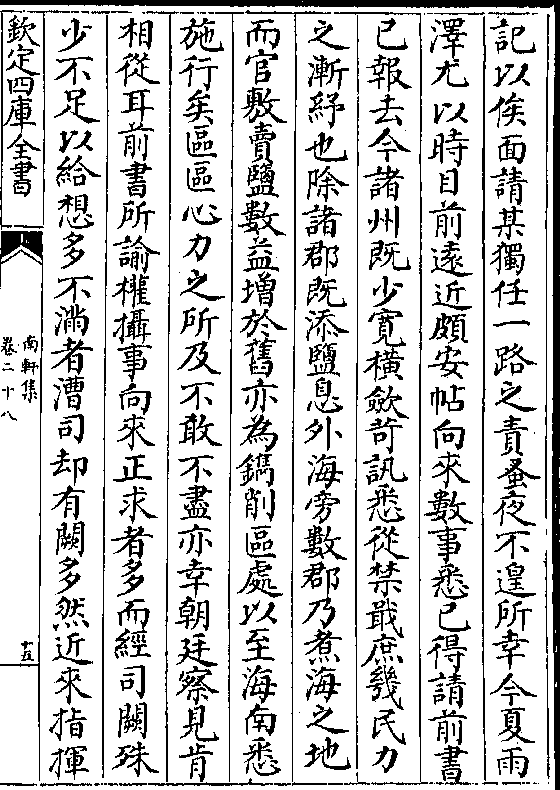 記以俟面請某獨任一路之責蚤夜不遑所幸今夏雨
澤尤以時目前遠近頗安帖向來數事悉已得請前書
已報去今諸州既少寛橫斂苛訊悉從禁戢庶幾民力
之漸紓也除諸郡既添鹽息外海旁數郡乃煮海之地
而官敷賣鹽數益增於舊亦為鐫削區處以至海南悉
施行矣區區心力之所及不敢不盡亦幸朝廷察見肯
相從耳前書所諭權攝事向來正求者多而經司闕殊
少不足以給想多不滿者漕司却有闕多然近來指揮
欽定四庫全書
南軒集
卷二十八
十五